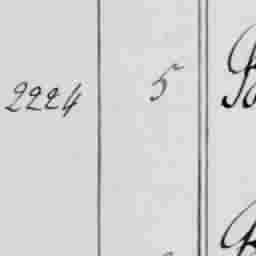 2224 5